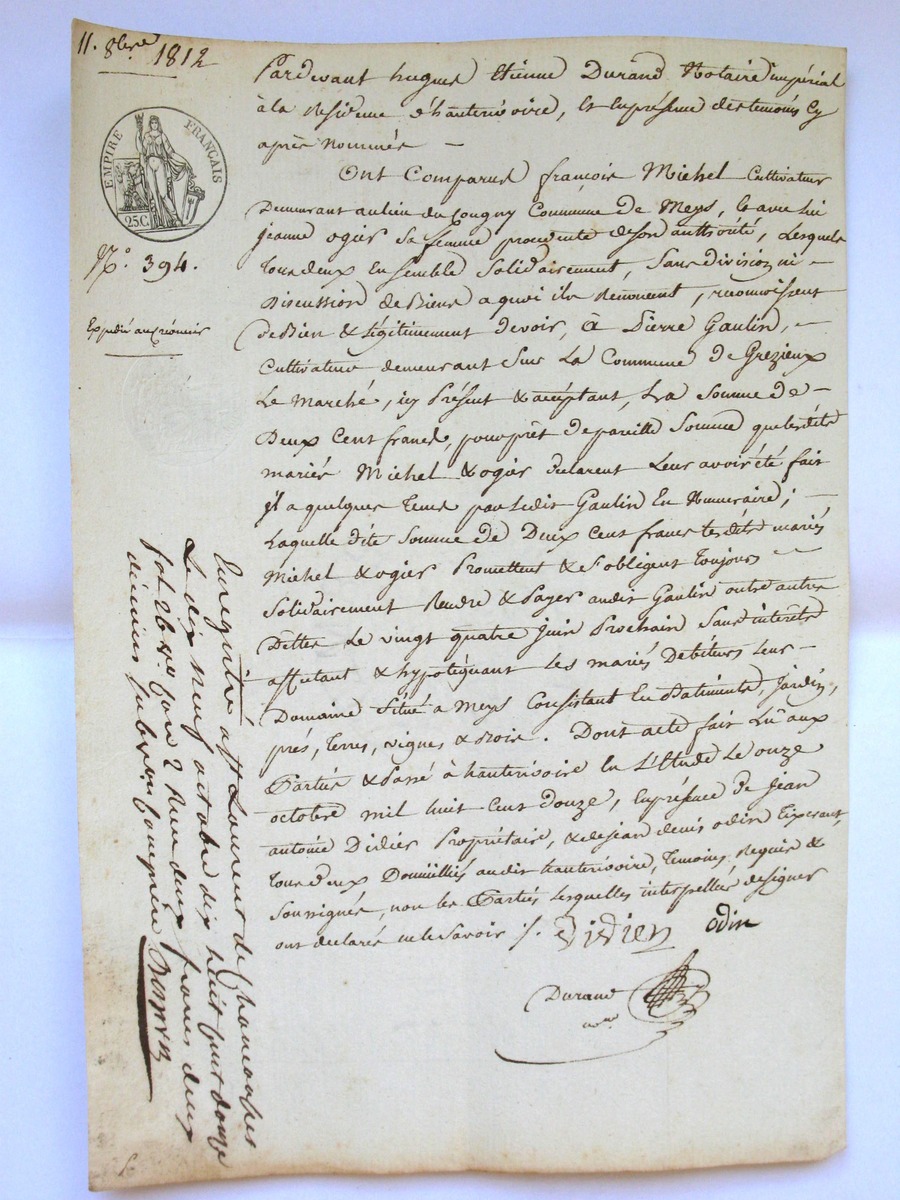 11. 8bre 1812
EMPIRE FRANÇAIS
25C
N.° 394.
Expédié au créancier
Pardevant hugues Etienne Durand Notaire impérial
à la Résidence d'hauterivoire, & en présence des temoins cy
après nommés —
Ont Comparus françois Michel Cultivateur
Demeurant au lieu du Commune de Meys, & avec lui
jeanne ogier sa femme procedente de son authorité, Lesquels
tous deux Ensemble Solidairement, Sans division ni —
Discussion de Biens a quoi ils Renoncent, reconnoissent
de Bien & légitimement devoir, à Pierre Gaulin, —
Cultivateur demeurant Sur La Commune de Grezieux
Le Marché, icy Présent & acceptant, La Somme de —
Deux Cent francs, pour prêt de pareille Somme que lesdits
mariés Michel & ogier declarent Leur avoir été fait
il a quelques tems par Ledit Gaulin En Numeraire ; —
Laquelle dite Somme de Deux Cent francs lesdits mariés
Michel & ogier Promettent & s'obligent toujours —
Solidairement Rendre & Payer audit Gaulin outre autres
Dettes Le vingt quatre juin Prochain Sans interêts
affectant & hypotéquant Les mariés Debiteurs Leur —
Domaine Situé a Meys Consistant En Batiments, Jardin,
prés, Terres, vignes & Bois. Dont acte fait Lu aux
Parties & Passé à hauterivoire En L'Etude Le onze
octobre mil huit Cent douze, En présence de Jean
antoine Didier Propriétaire, & de Jean denis odin Tixerant,
tous deux Domiciliés audit hauterivoire, Temoins Requis &
Soussignés, non les Parties Lesquelles interpellées de signer
ont declarés ne le Savoir ./.
Didier
odin
Durand
nore
Enregistré à St Laurent de Chamousset
Le dix neuf octobre dix huit cent douze
fol 26 Ro Case 2 Reçu deux francs deux
décimes subvention comprise